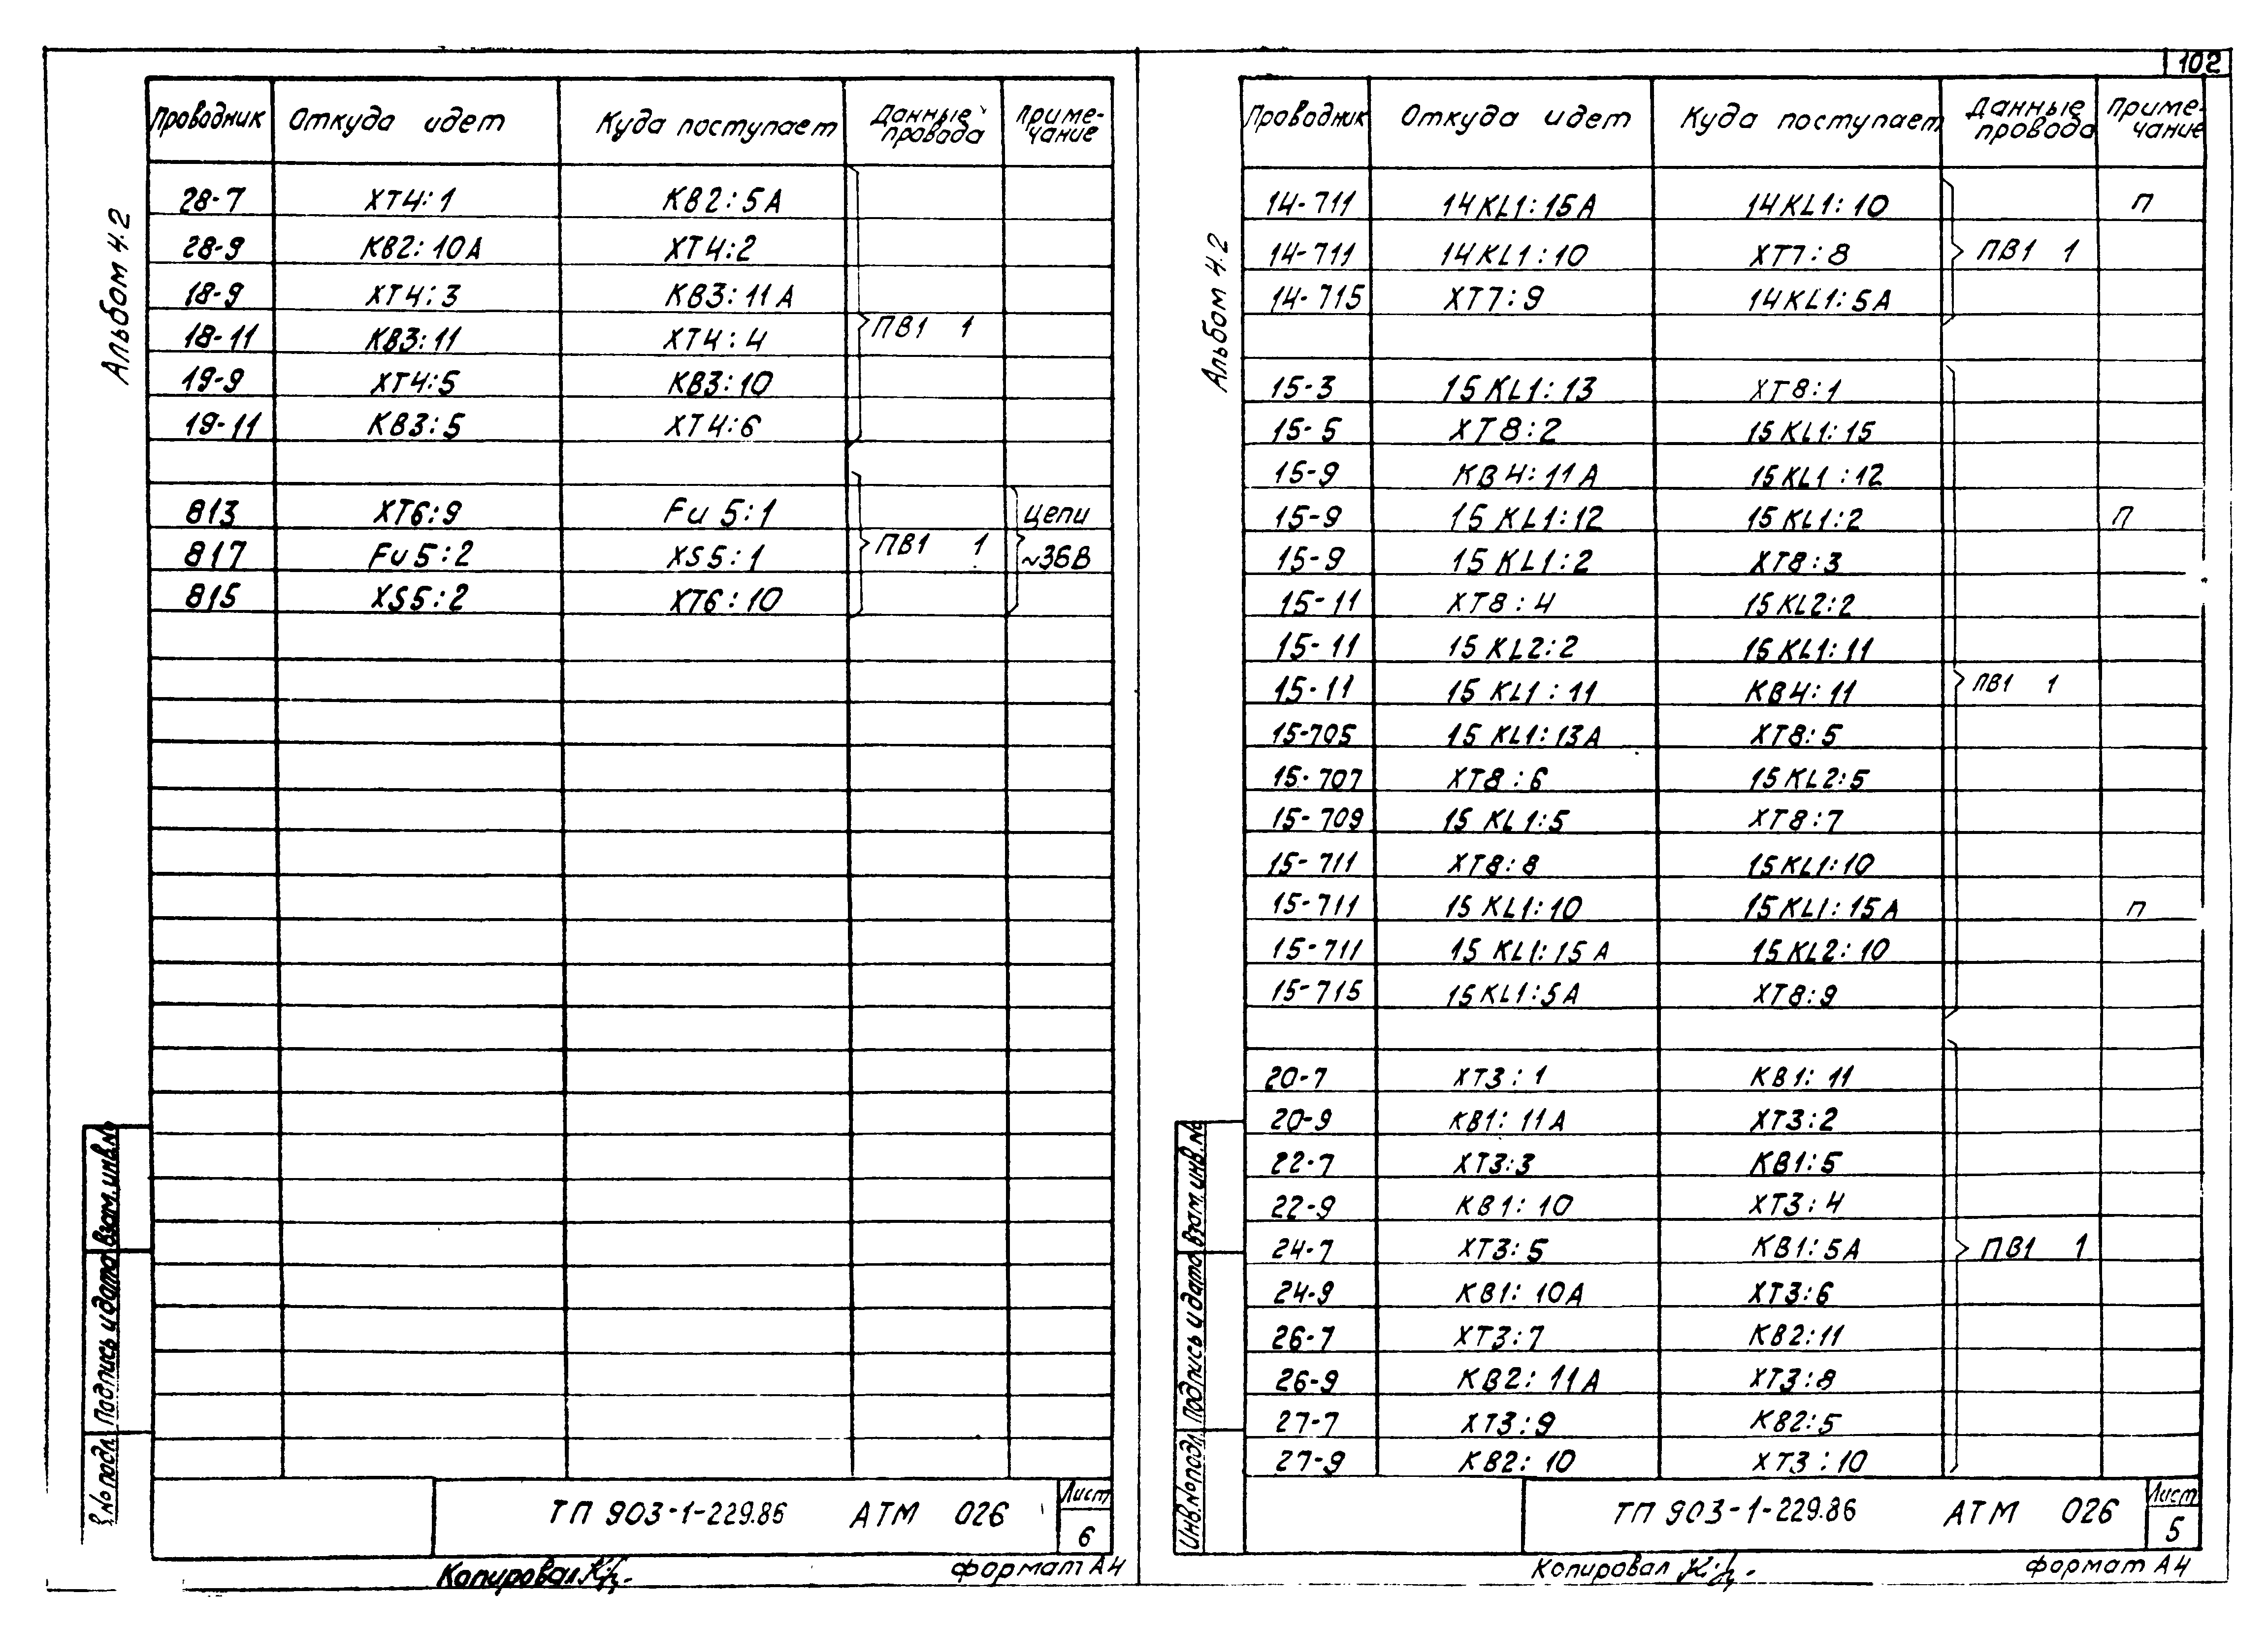 102
Альбом 4.2
Проводник Откуда идет Куда поступает Данные провода Примечание
28-7 XT4:1 KB2:5A
28-9 KB2:10A XT4:2
18-9 XT4:3 KB3:11A
18-11 KB3:11 XT4:4
ПВ1 1
19-9 XT4:5 KB3:10
19-11 KB3:5 XT4:6
813 XT6:9 Fu5:1 Цепи
817 Fu5:2 XS5:1 ПВ1 1 ~36В
815 XS5:2 XT6:10
Взам.инв.№
Подпись и дата
№ подл.
ТП 903-1-229.86 АТМ 026 Лист
6
Копировал
формат А4
Альбом 4.2
Проводник Откуда идет Куда поступает Данные провода Примечание
14-711 14KL1:15A 14KL1:10 П
14-711 14KL1:10 XT7:8 ПВ1 1
14-715 XT7:9 14KL1:5A
15-3 15KL1:13 XT8:1
15-5 XT8:2 15KL1:15
15-9 KB4:11A 15KL1:12
15-9 15KL1:12 15KL1:2 П
15-9 15KL1:2 XT8:3
15-11 XT8:4 15KL2:2
15-11 15KL2:2 15KL1:11
15-11 15KL1:11 KB4:11 ПВ1 1
15-705 15KL1:13A XT8:5
15-707 XT8:6 15KL2:5
15-709 15KL1:5 XT8:7
15-711 XT8:8 15KL1:10
15-711 15KL1:10 15KL1:15A П
15-711 15KL1:15A 15KL2:10
15-715 15KL1:5A XT8:9
20-7 XT3:1 KB1:11
20-9 KB1:11A XT3:2
22-7 XT3:3 KB1:5
22-9 KB1:10 XT3:4
24-7 XT3:5 KB1:5A ПВ1 1
24-9 KB1:10A XT3:6
26-7 XT3:7 KB2:11
26-9 KB2:11A XT3:8
27-7 XT3:9 KB2:5
27-9 KB2:10 XT3:10
Взам.инв.№
Подпись и дата
Инв.№подл.
ТП 903-1-229.86 АТМ 026 Лист
5
Копировал
формат А4